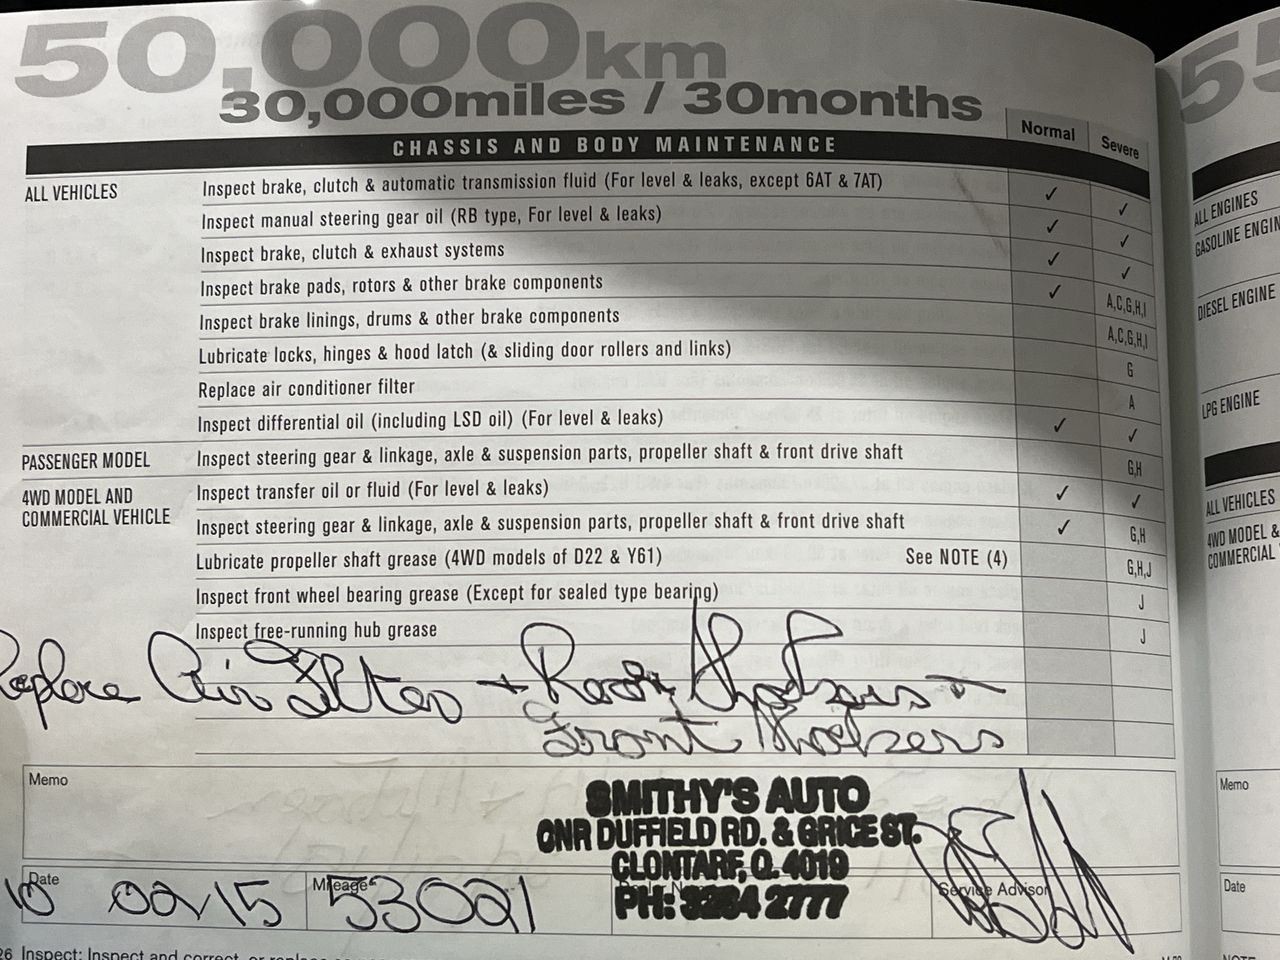 50,000km
30,000miles / 30months
CHASSIS AND BODY MAINTENANCE Normal Severe
ALL VEHICLES Inspect brake, clutch & automatic transmission fluid (For level & leaks, except 6AT & 7AT) ✓ ✓
Inspect manual steering gear oil (RB type, For level & leaks) ✓ ✓
Inspect brake, clutch & exhaust systems ✓ ✓
Inspect brake pads, rotors & other brake components ✓ A,C,G,H,I
Inspect brake linings, drums & other brake components A,C,G,H,I
Lubricate locks, hinges & hood latch (& sliding door rollers and links) G
Replace air conditioner filter A
Inspect differential oil (including LSD oil) (For level & leaks) ✓ ✓
PASSENGER MODEL Inspect steering gear & linkage, axle & suspension parts, propeller shaft & front drive shaft G,H
4WD MODEL AND COMMERCIAL VEHICLE Inspect transfer oil or fluid (For level & leaks) ✓ ✓
Inspect steering gear & linkage, axle & suspension parts, propeller shaft & front drive shaft ✓ G,H
Lubricate propeller shaft grease (4WD models of D22 & Y61) See NOTE (4) G,H,J
Inspect front wheel bearing grease (Except for sealed type bearing) J
Inspect free-running hub grease J
Replace Air Filter + Rear +
Front
Memo
SMITHY'S AUTO
CNR DUFFIELD RD. & GRICE ST.
CLONTARF, Q. 4019
PH: 3284 2777
Date 10 02/15 Mileage 53021 Service Advisor
26 Inspect: Inspect and correct, or replace
55
ALL ENGINES
GASOLINE ENGIN
DIESEL ENGINE
LPG ENGINE
ALL VEHICLES
4WD MODEL &
COMMERCIAL
Memo
Date
NOTE